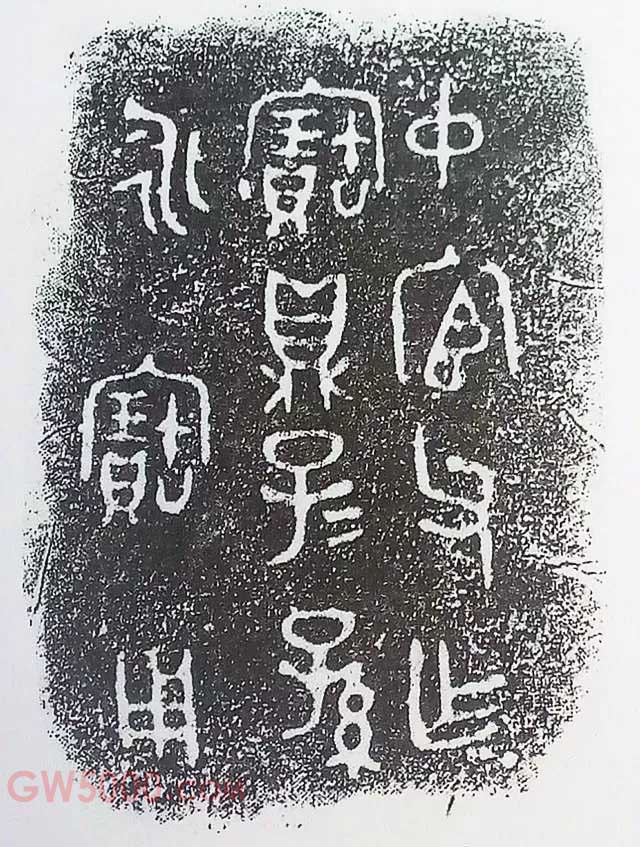 中宦父乍
寶鼎子=孫
永寶用
GW5000.com